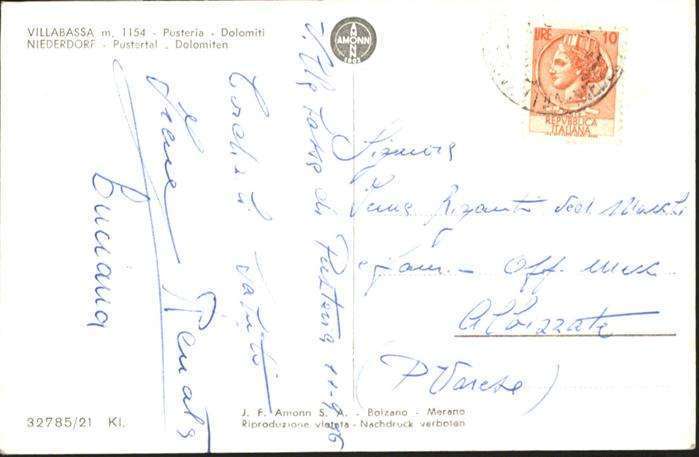 VILLABASSA m. 1154 - Pusteria - Dolomiti
NIEDERDORF - Pustertal - Dolomiten
AMONN
LIRE 10
REPVBBLICA
ITALIANA
di Pusteria 11-9-56
Cordiali saluti
Renata
Luciana
Signora
Rizanti
e fam - Off. Mecc.
Albizzate
(P. Varese)
32785/21 Kl.
J. F. Amonn S. A. - Bolzano - Merano
Riproduzione vietata - Nachdruck verboten